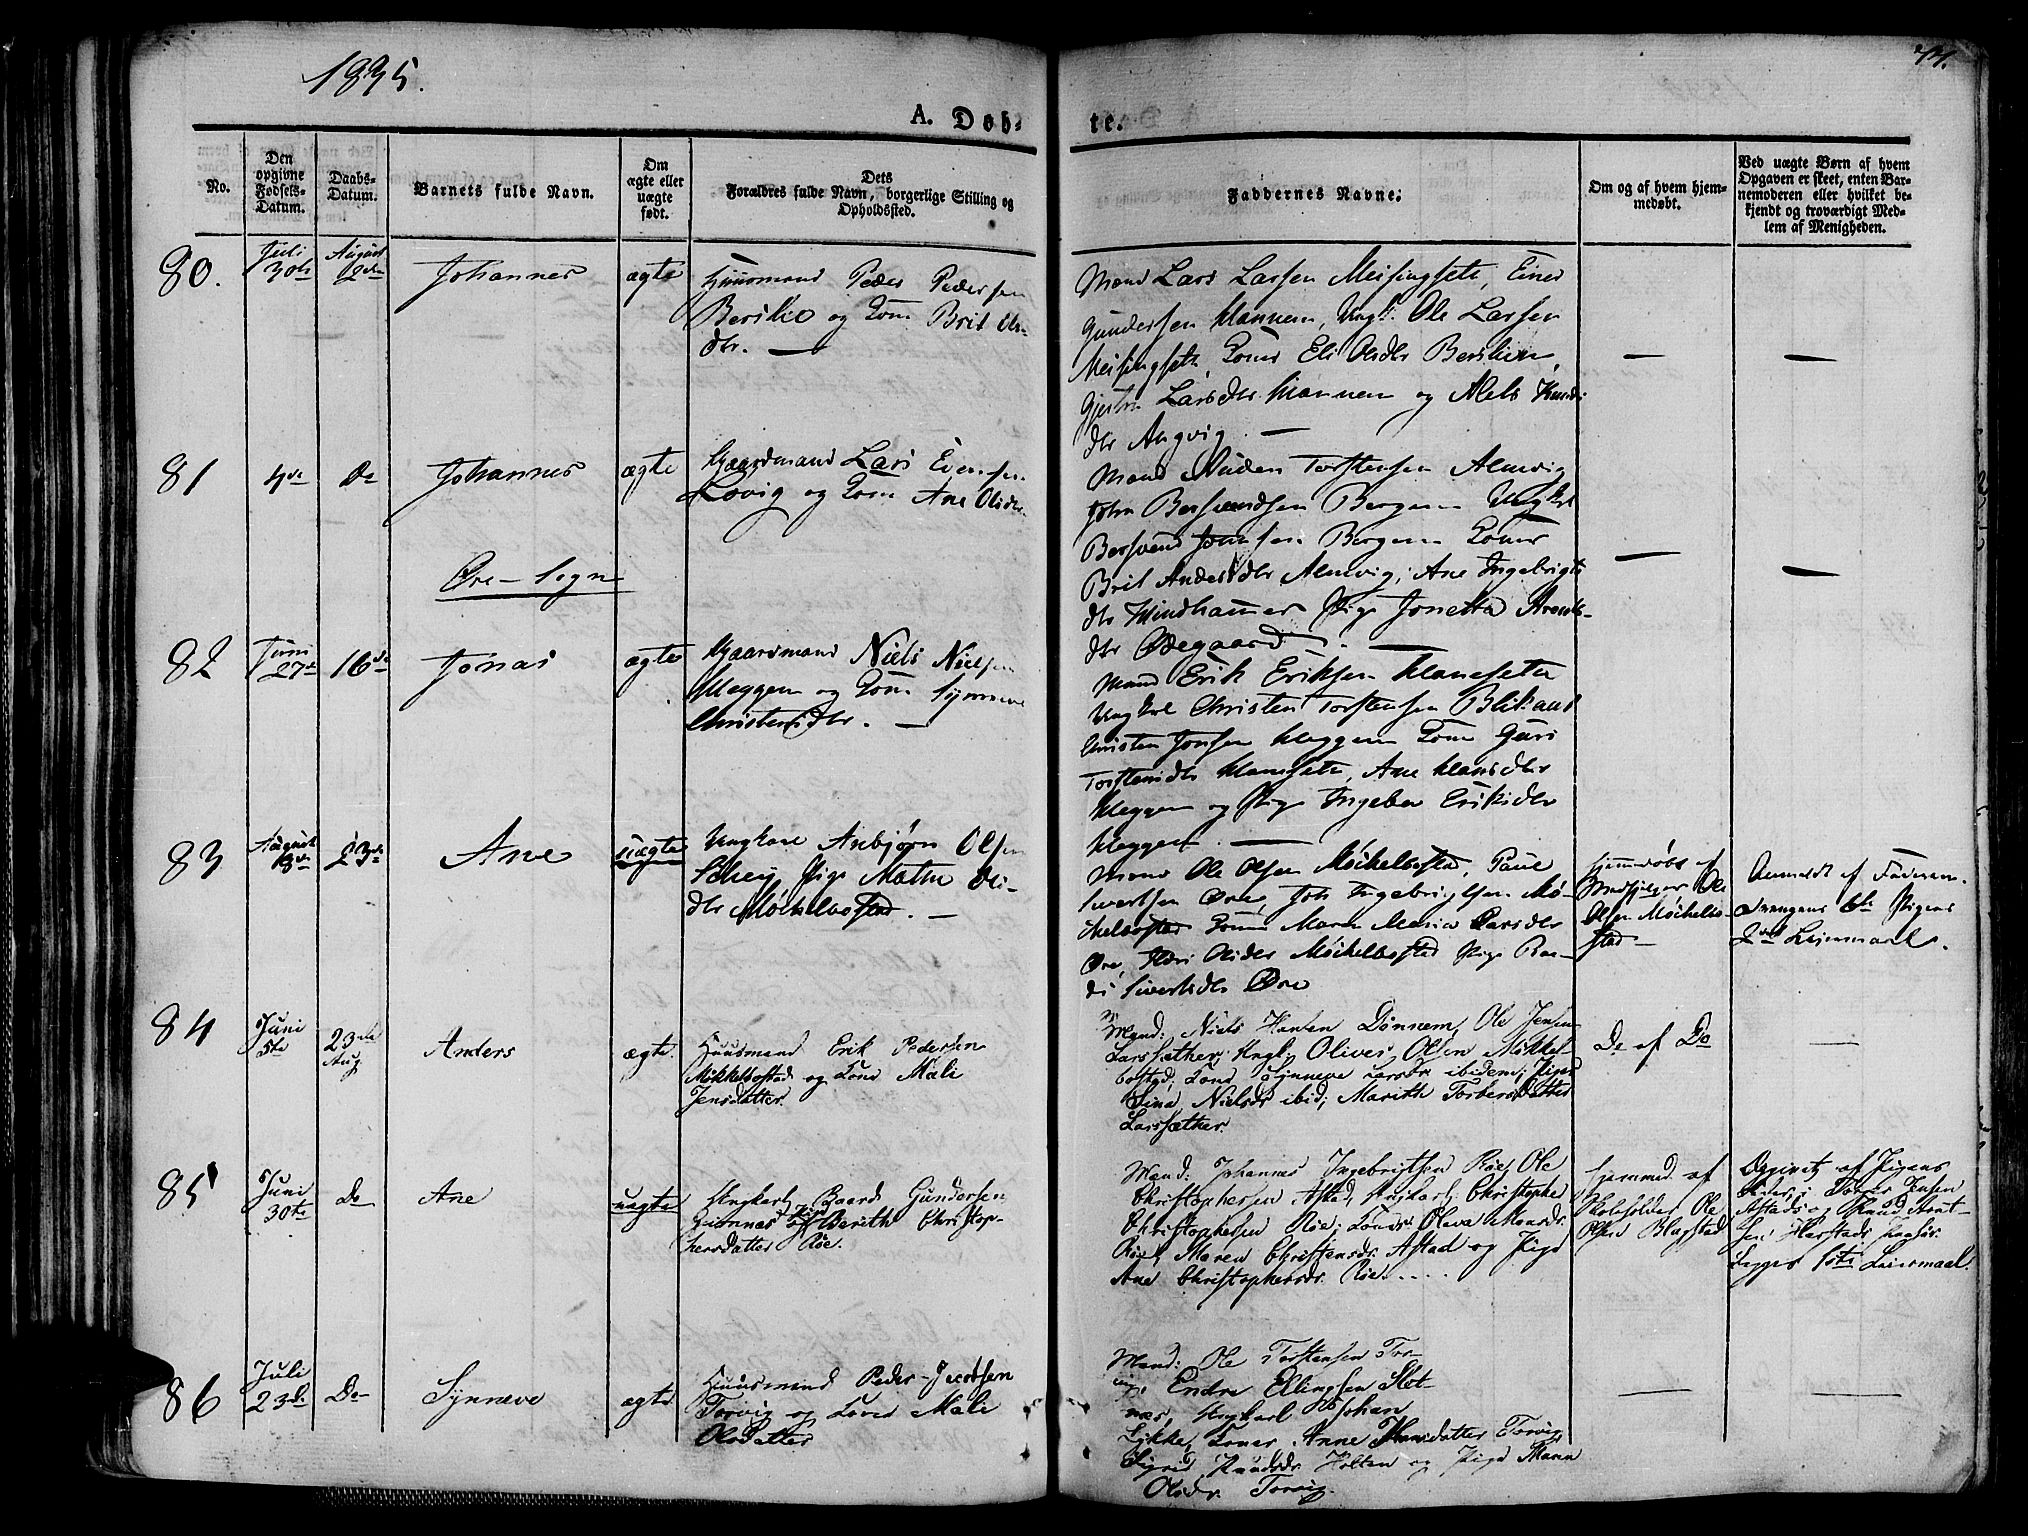 1835.
74.
A. Døb-
te.
No.
Den opgivne Fødsels-Datum.
Daabs-Datum.
Barnets fulde Navn.
Om ægte eller uægte født.
Dets Forældres fulde Navn, borgerlige Stilling og Opholdssted.
Faddernes Navne.
Om og af hvem hjemmedøbt.
Ved uægte Børn af hvem Opgaven er skeet, enten Barnemoderen eller hvilket bekjendt og troværdigt Medlem af Menigheden.
80.
Juli
30te
August
2den
Johannes
ægte
Huusmand Peder Pedersen
Berslie og Kone Brit Ols
dtr. —
Mænd Lars Larsen Meisingsete, Einer
Gundersen Hannem, Ungk. Ole Larsen
Meisingseth, Koner Eli Olsdtr Berslien,
Larsdtr Hannem og
dtr Angvig. —
—
—
81
4de
do
Johannes
ægte
Gaardmand Lars Evensen
Lovig og Kone Ane Olsdtr
Mænd Anders Torstensen Almvig
John Bersvendsen Bergem Ungkrl
Bersvend Johnsen Bergem Koner
Brit Andersdtr Almvig, Ane Ingebrigts
dtr Windhammer Pige Jonetta Arents-
dtr Ødegaard. —
—
—
Øre-Sogn
82
Juni
27de
16de
Jonas
ægte
Gaardmand Niels Nielsen
Heggem og Kone Synneve
Christensdtr. —
Mænd Erik Eriksen Hanesete
Ungkrl Christen Torstensen Blikaas
Christen Jonsen Heggem Kone Guri
Torstensdtr Hanesete, Ane Hansdtr
Heggem og Pige Ingebor Eriksdtr
Heggem. —
83
August
23de
Ane
uægte
Ungkarl Anbjørn Olsen
Schey, Pige Mathe Ols-
dtr Møchelbostad. —
Mænd Ole Olsen Møchelbostad, Paul
Sivertsen Øre, Joh Ingebrigtsen Mø-
chelbostad Koner Maren Maria Larsdtr
Øre, Olsdtr Møchelbostad Pige Ran-
di Sivertsdtr Øre
hjemdøbt af
Medhjelper Ole
Olsen Møchelbo-
stad —
Anmeldt af Faderen.
Drengens 6te Pigens
2det Leiermaal.
84
Juni
5te
23de
Aug.
Anders
ægte.
Huusmand Erik Pedersen
Mikkelbostad og Kone Mali
Jensdatter.
Mænd: Niels Hansen Dønnem, Ole Jensen
Larssæther; Ungk. Oliver Olsen Møkkel-
bostad; Kone Synneve Larsdr ibidem; Piger
Sina Nielsdr ibid; Marith Torbersdatter
Larssæther.
Do af Do
—
85
Juni
30te
Do
Ane
uægte
Ungkarl Baard Gundersen
Gimnæs og Pige Berith Christop-
hersdatter Røe.
Mænd: Johannes Ingebrigtsen Røe, Ole
Christophersen Astad, Ungkarl: Christopher
Christophersen Røe; Koner: Oleva Monsdr.
Røe, Maren Christensdr. Astad og Pige
Ane Christophersdr. Røe. ....
Hjemmed. af
Skoleholder Ole
Olsen Blagstad
Opgivet af Pigens
Astad og Knud Arnt-
sen Harstad.
Begges 1ste Leiermaal.
86
Juli
23de
Do
Synneve
ægte
Huusmand Peder Jacobsen
Torvig og Kone Mali
Olsdatter
Mænd: Ole Torstensen Tor-
vig, Endre Ellingsen Slet-
næs, Ungkarl Johan
Lykke, Koner: Anne Hansdatter Torvig
Sigrid Knudsdr. Holten og Pige Maren
Olsdr. Torvig.
—
—